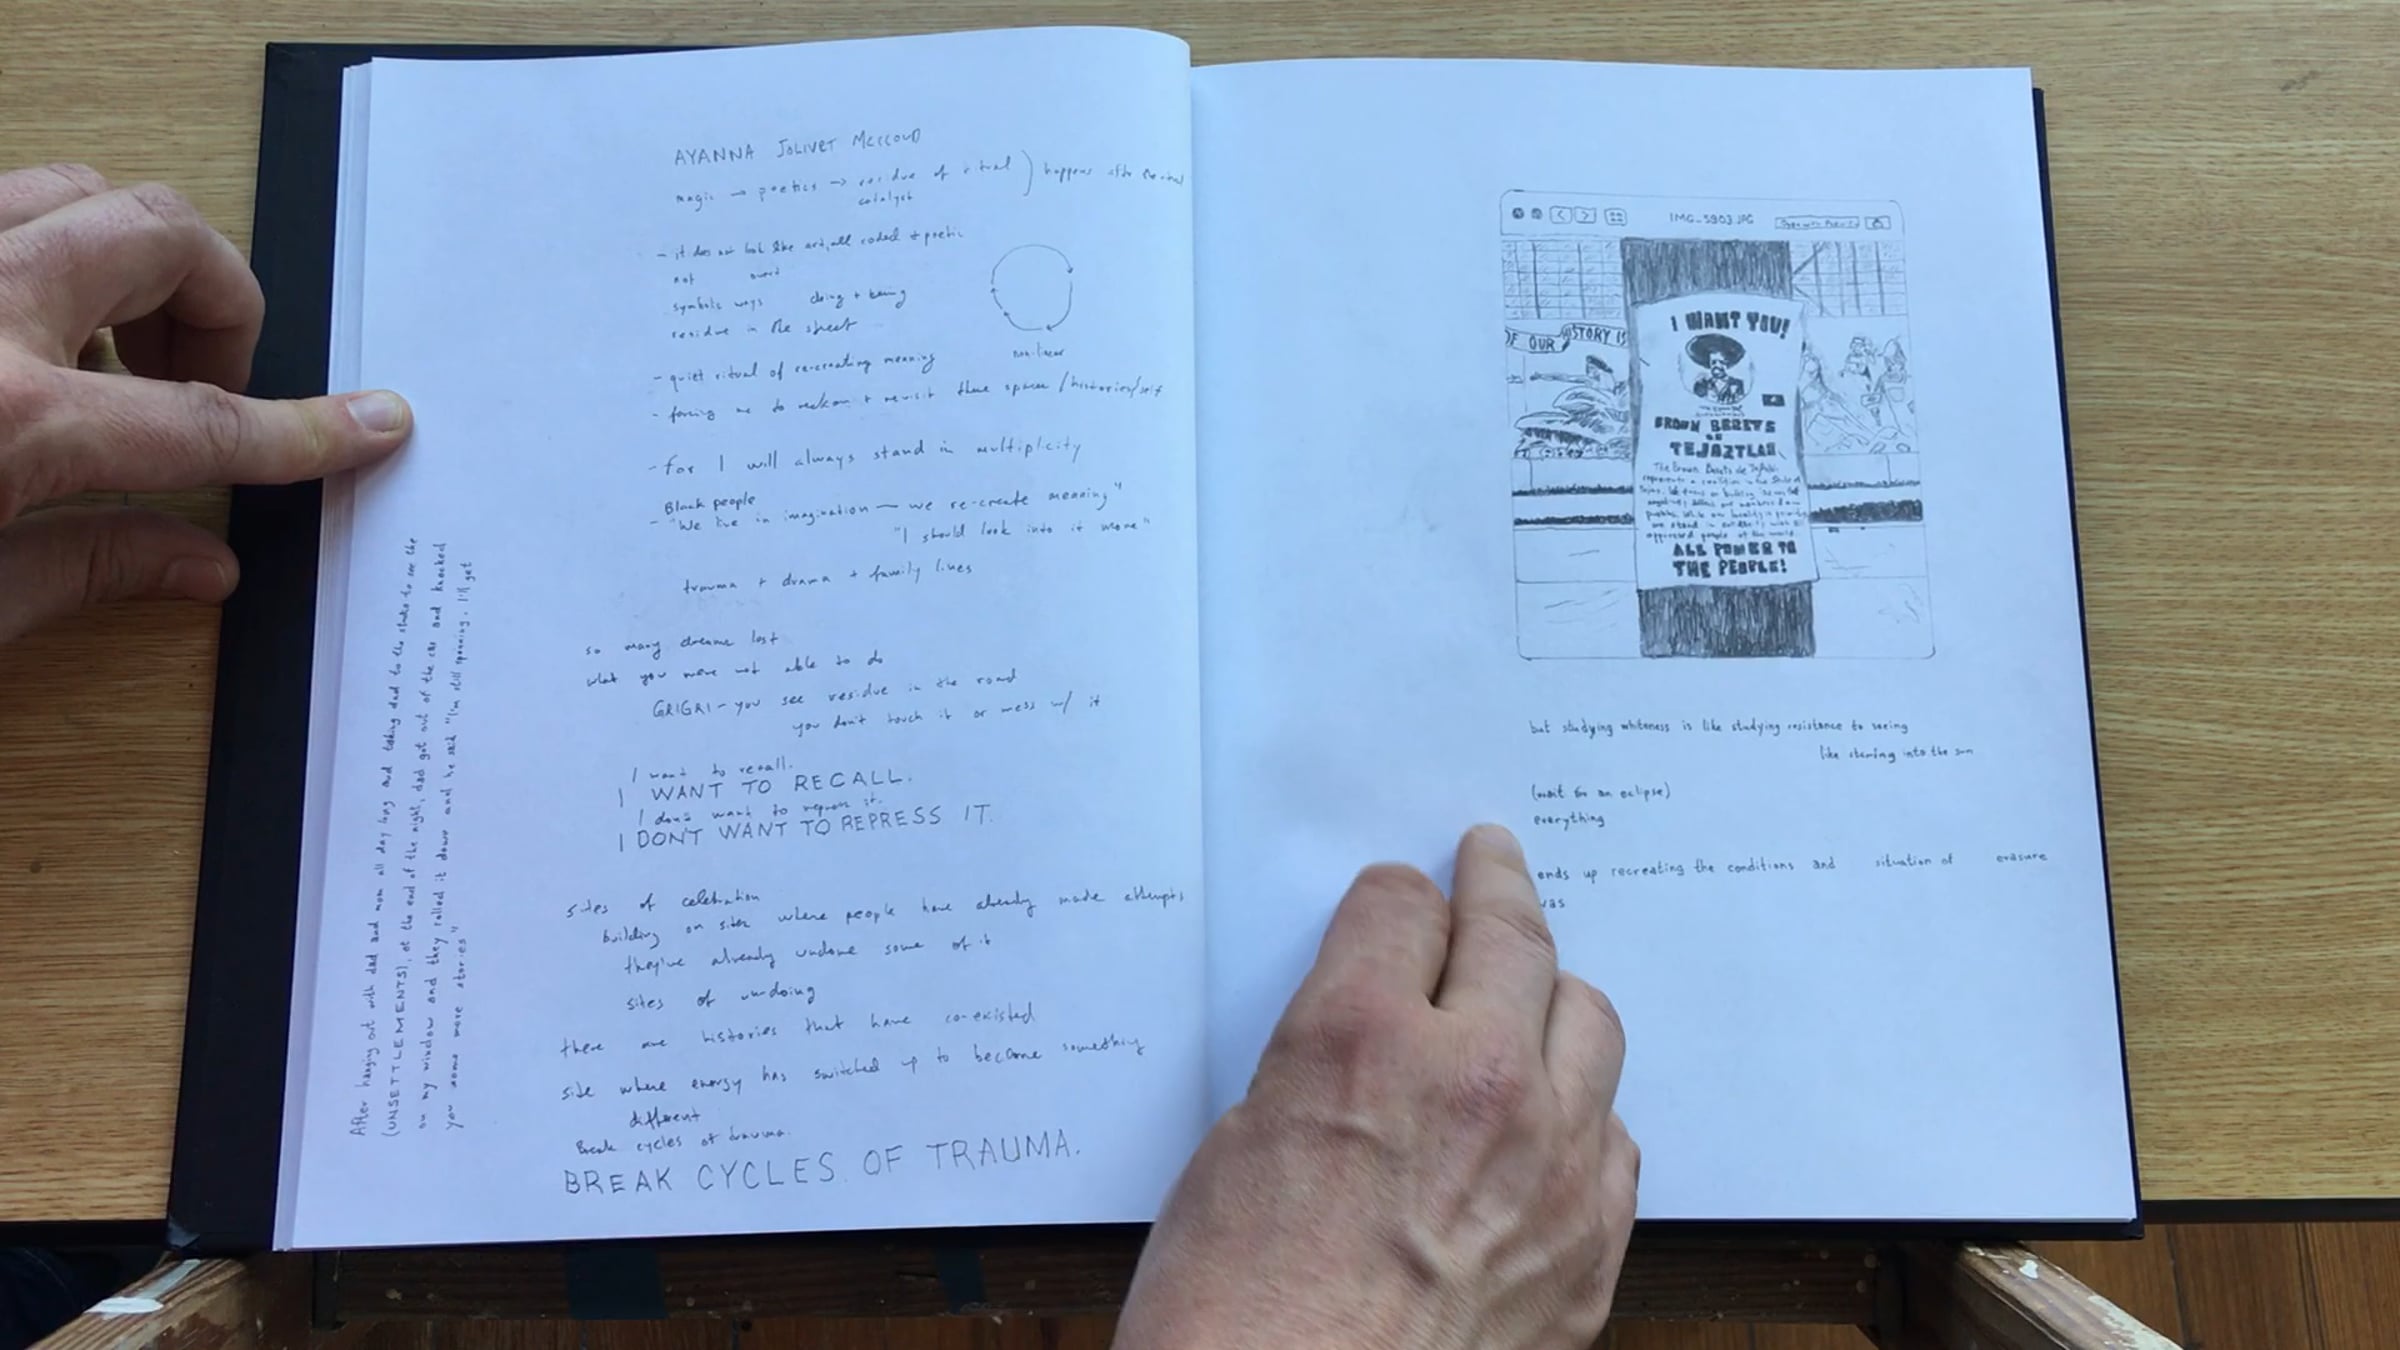 AYANNA JOLIVET McCLOUD
magic → poetics → residue of ritual ) happens after the ritual
catalyst
- it does not look like art, all coded + poetic
not overt
symbolic ways doing + being
residue in the street
non-linear
- quiet ritual of re-creating meaning
- forcing me to reckon + revisit these spaces/histories/self
- for I will always stand in multiplicity
Black people
- "We live in imagination — we re-create meaning"
"I should look into it more"
trauma + drama + family lines
so many dreams lost
what you were not able to do
GRIGRI - you see residue in the road
you don't touch it or mess w/ it
I want to recall.
I WANT TO RECALL.
I don't want to repress it.
I DON'T WANT TO REPRESS IT.
sites of celebration
building on sites where people have already made attempts
they've already undone some of it
sites of un-doing
there are histories that have co-existed
site where energy has switched up to become something
different
Break cycles of trauma.
BREAK CYCLES OF TRAUMA.
After hanging out with dad and mom all day long and taking dad to the studio to see the
(UNSETTLEMENTS), at the end of the night, dad got out of the car and knocked
on my window and they rolled it down and he said "I'm still spinning. I'll get
you some more stories"
IMG_5903.JPG
OF OUR HISTORY IS
I WANT YOU!
BROWN BERETS
DE
TEJAZTLAN
The Brown Berets de Tejaztlan
represents a coalition in the State of
Tejas. We focus on building
we stand in solidarity with all
oppressed people of the world.
ALL POWER TO
THE PEOPLE!
but studying whiteness is like studying resistance to seeing
like staring into the sun
(wait for an eclipse)
everything
ends up recreating the conditions and situation of erasure
was